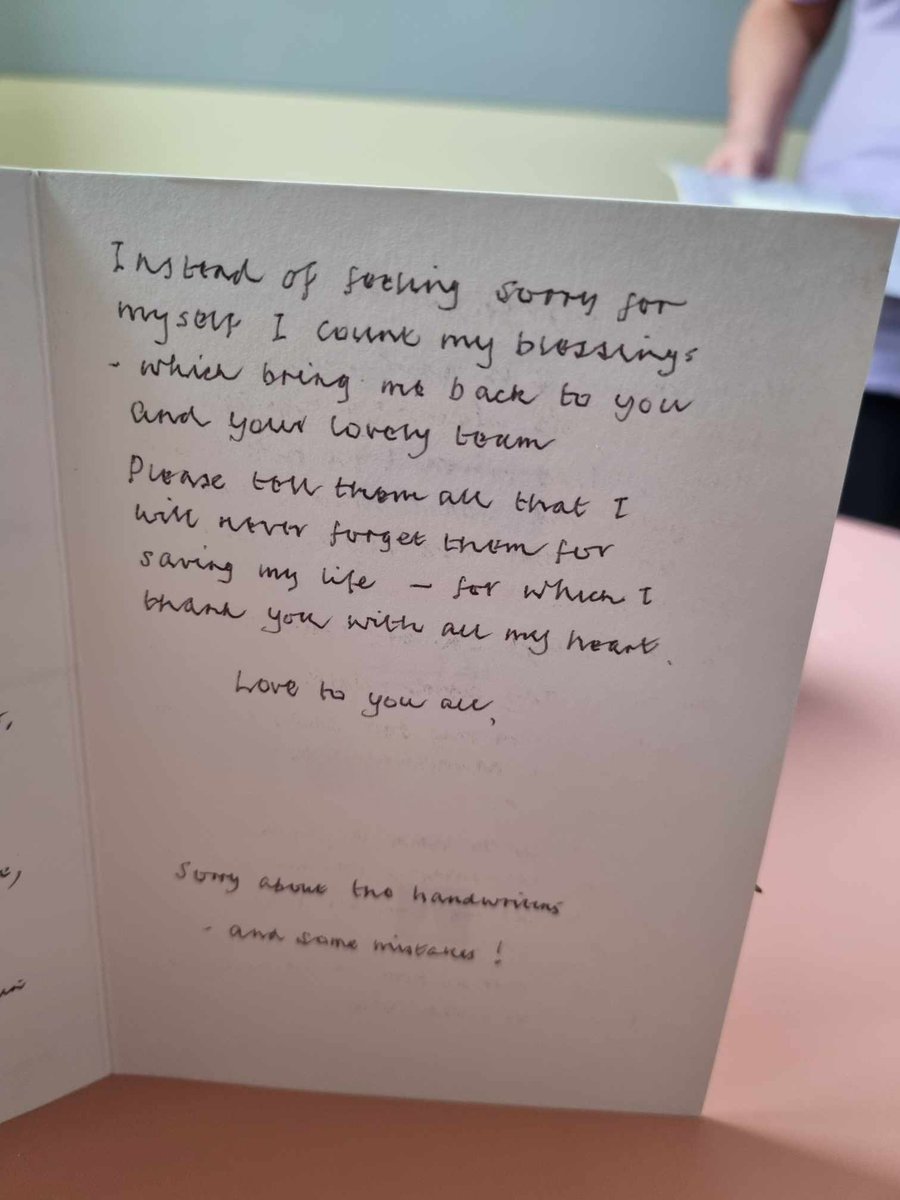 Instead of feeling sorry for
myself I count my blessings
- which bring me back to you
and your lovely team
Please tell them all that I
will never forget them for
saving my life – for which I
thank you with all my heart.
Love to you all,
Sorry about the handwriting
- and some mistakes!